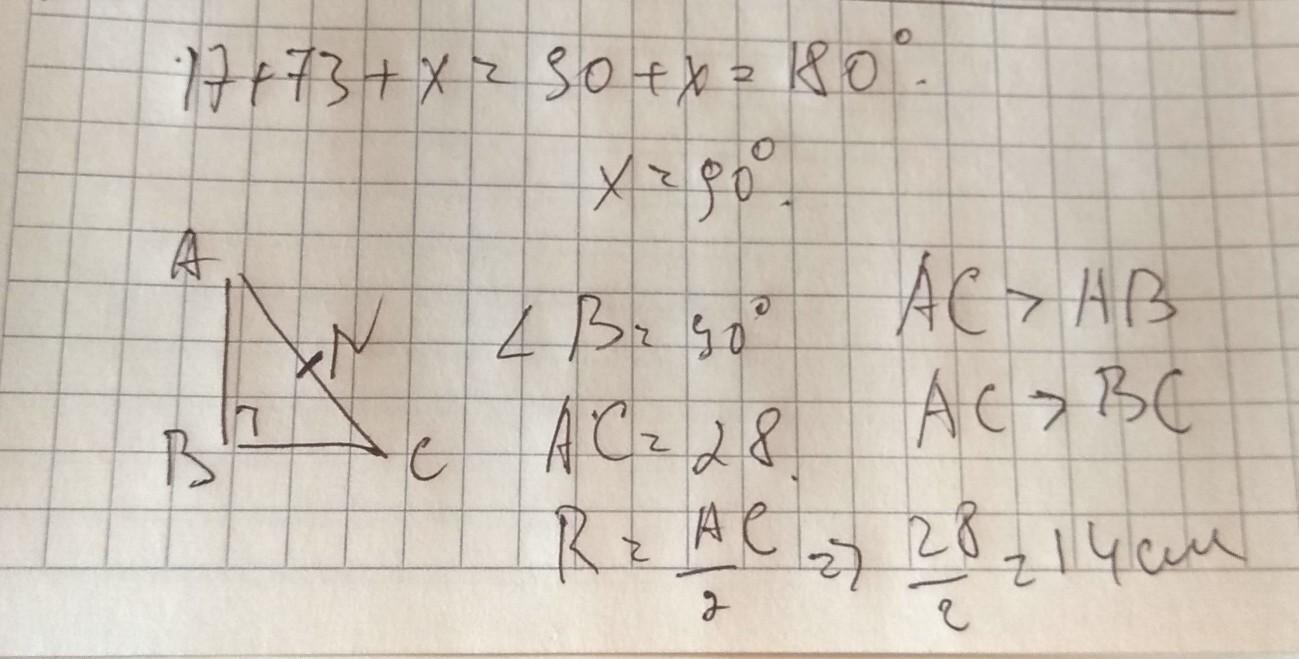 17+73+x=90+x=180°.
x=90°.
A
N
B
C
∠B=90°
AC=28.
R=AC/2 => 28/2=14см
AC>AB
AC>BC